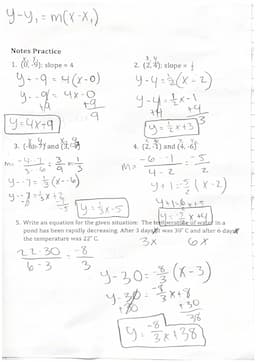 y-y₁ = m(x-x₁)
Notes Practice
1. (0, 9); slope = 4
y--9 = 4(x-0)
y--9 = 4x-0
+9 +9
y=4x+9
2. (2, 4); slope = ½
y-4=½(x-2)
y-4=½x-1
+4 +4
3
y=½x+3
3. and
m= -4-7 = 3 = 1
3-6 9 3
y--7=⅓(x--6)
y=⅓x-5
4. (2, -1) and (4, -6)
m= -6--1 -5
4-2 2
y+1=-5/2(x-2)
y=-5/2x+4
5. Write an equation for the given situation: The temperature of water in a
pond has been rapidly decreasing. After 3 days it was 30° C and after 6 days
the temperature was 22° C.
3x 6x
22-30 = -8
6-3 3
y-30=-8/3(x-3)
y-30=-8/3x+8
+30 +30
38
y=-8/3x+38